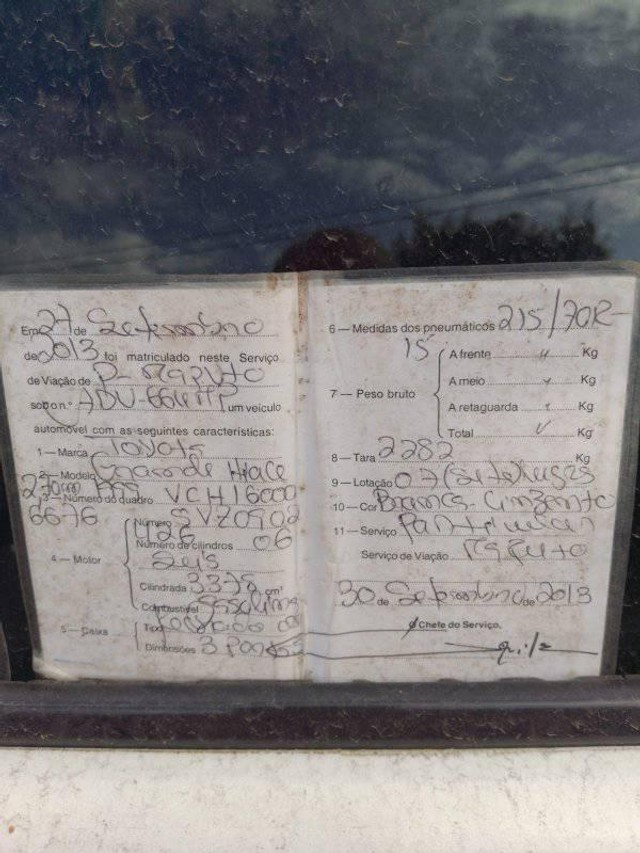 Em 27 de Setembro
de 2013 foi matriculado neste Serviço
de Viação de P. Maputo
sob o n.º ADU-664MP um veículo
automóvel com as seguintes características:
1 — Marca Toyota
2 — Modelo Hiace
3 — Número do quadro VCH16000
6676
4 — Motor
Número 5VZ0902
126
Número de cilindros 06
Seis
Cilindrada 3378 cm³
Combustível Gasolina
5 — Caixa
Tipo Fechado
Dimensões 3 Portas
6 — Medidas dos pneumáticos 215/70R
15
7 — Peso bruto
A frente Kg
A meio Kg
A retaguarda Kg
Total Kg
8 — Tara 2282 Kg
9 — Lotação 07 (Sete) lugares
10 — Cor Branca-Cinzento
11 — Serviço Particular
Serviço de Viação Maputo
30 de Setembro de 2013
O Chefe do Serviço,